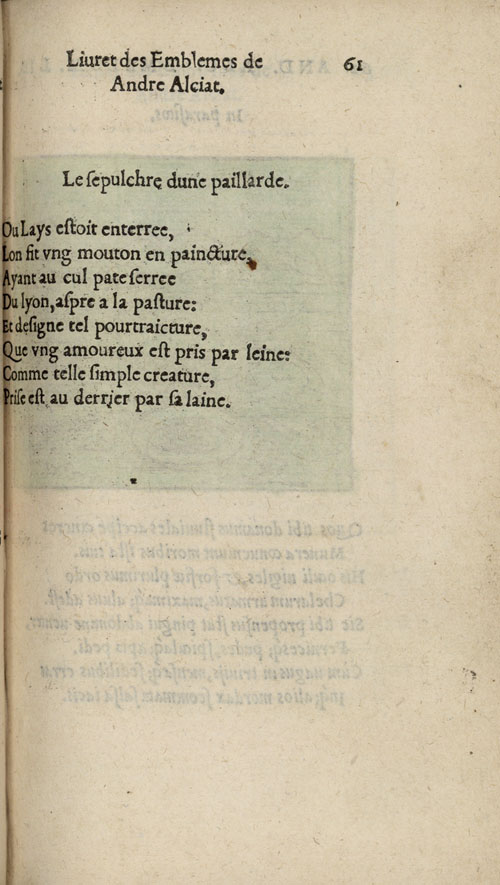 Liuret des Emblemes de 61
Andre Alciat.
Le sepulchre dune paillarde.
Ou Lays estoit enterree,
Lon fit vng mouton en paincture,
Ayant au cul pate serree
Du lyon, aspre a la pasture:
Et designe tel pourtraicture,
Que vng amoureux est pris par leine:
Comme telle simple creature,
Prise est au derrier par sa laine.